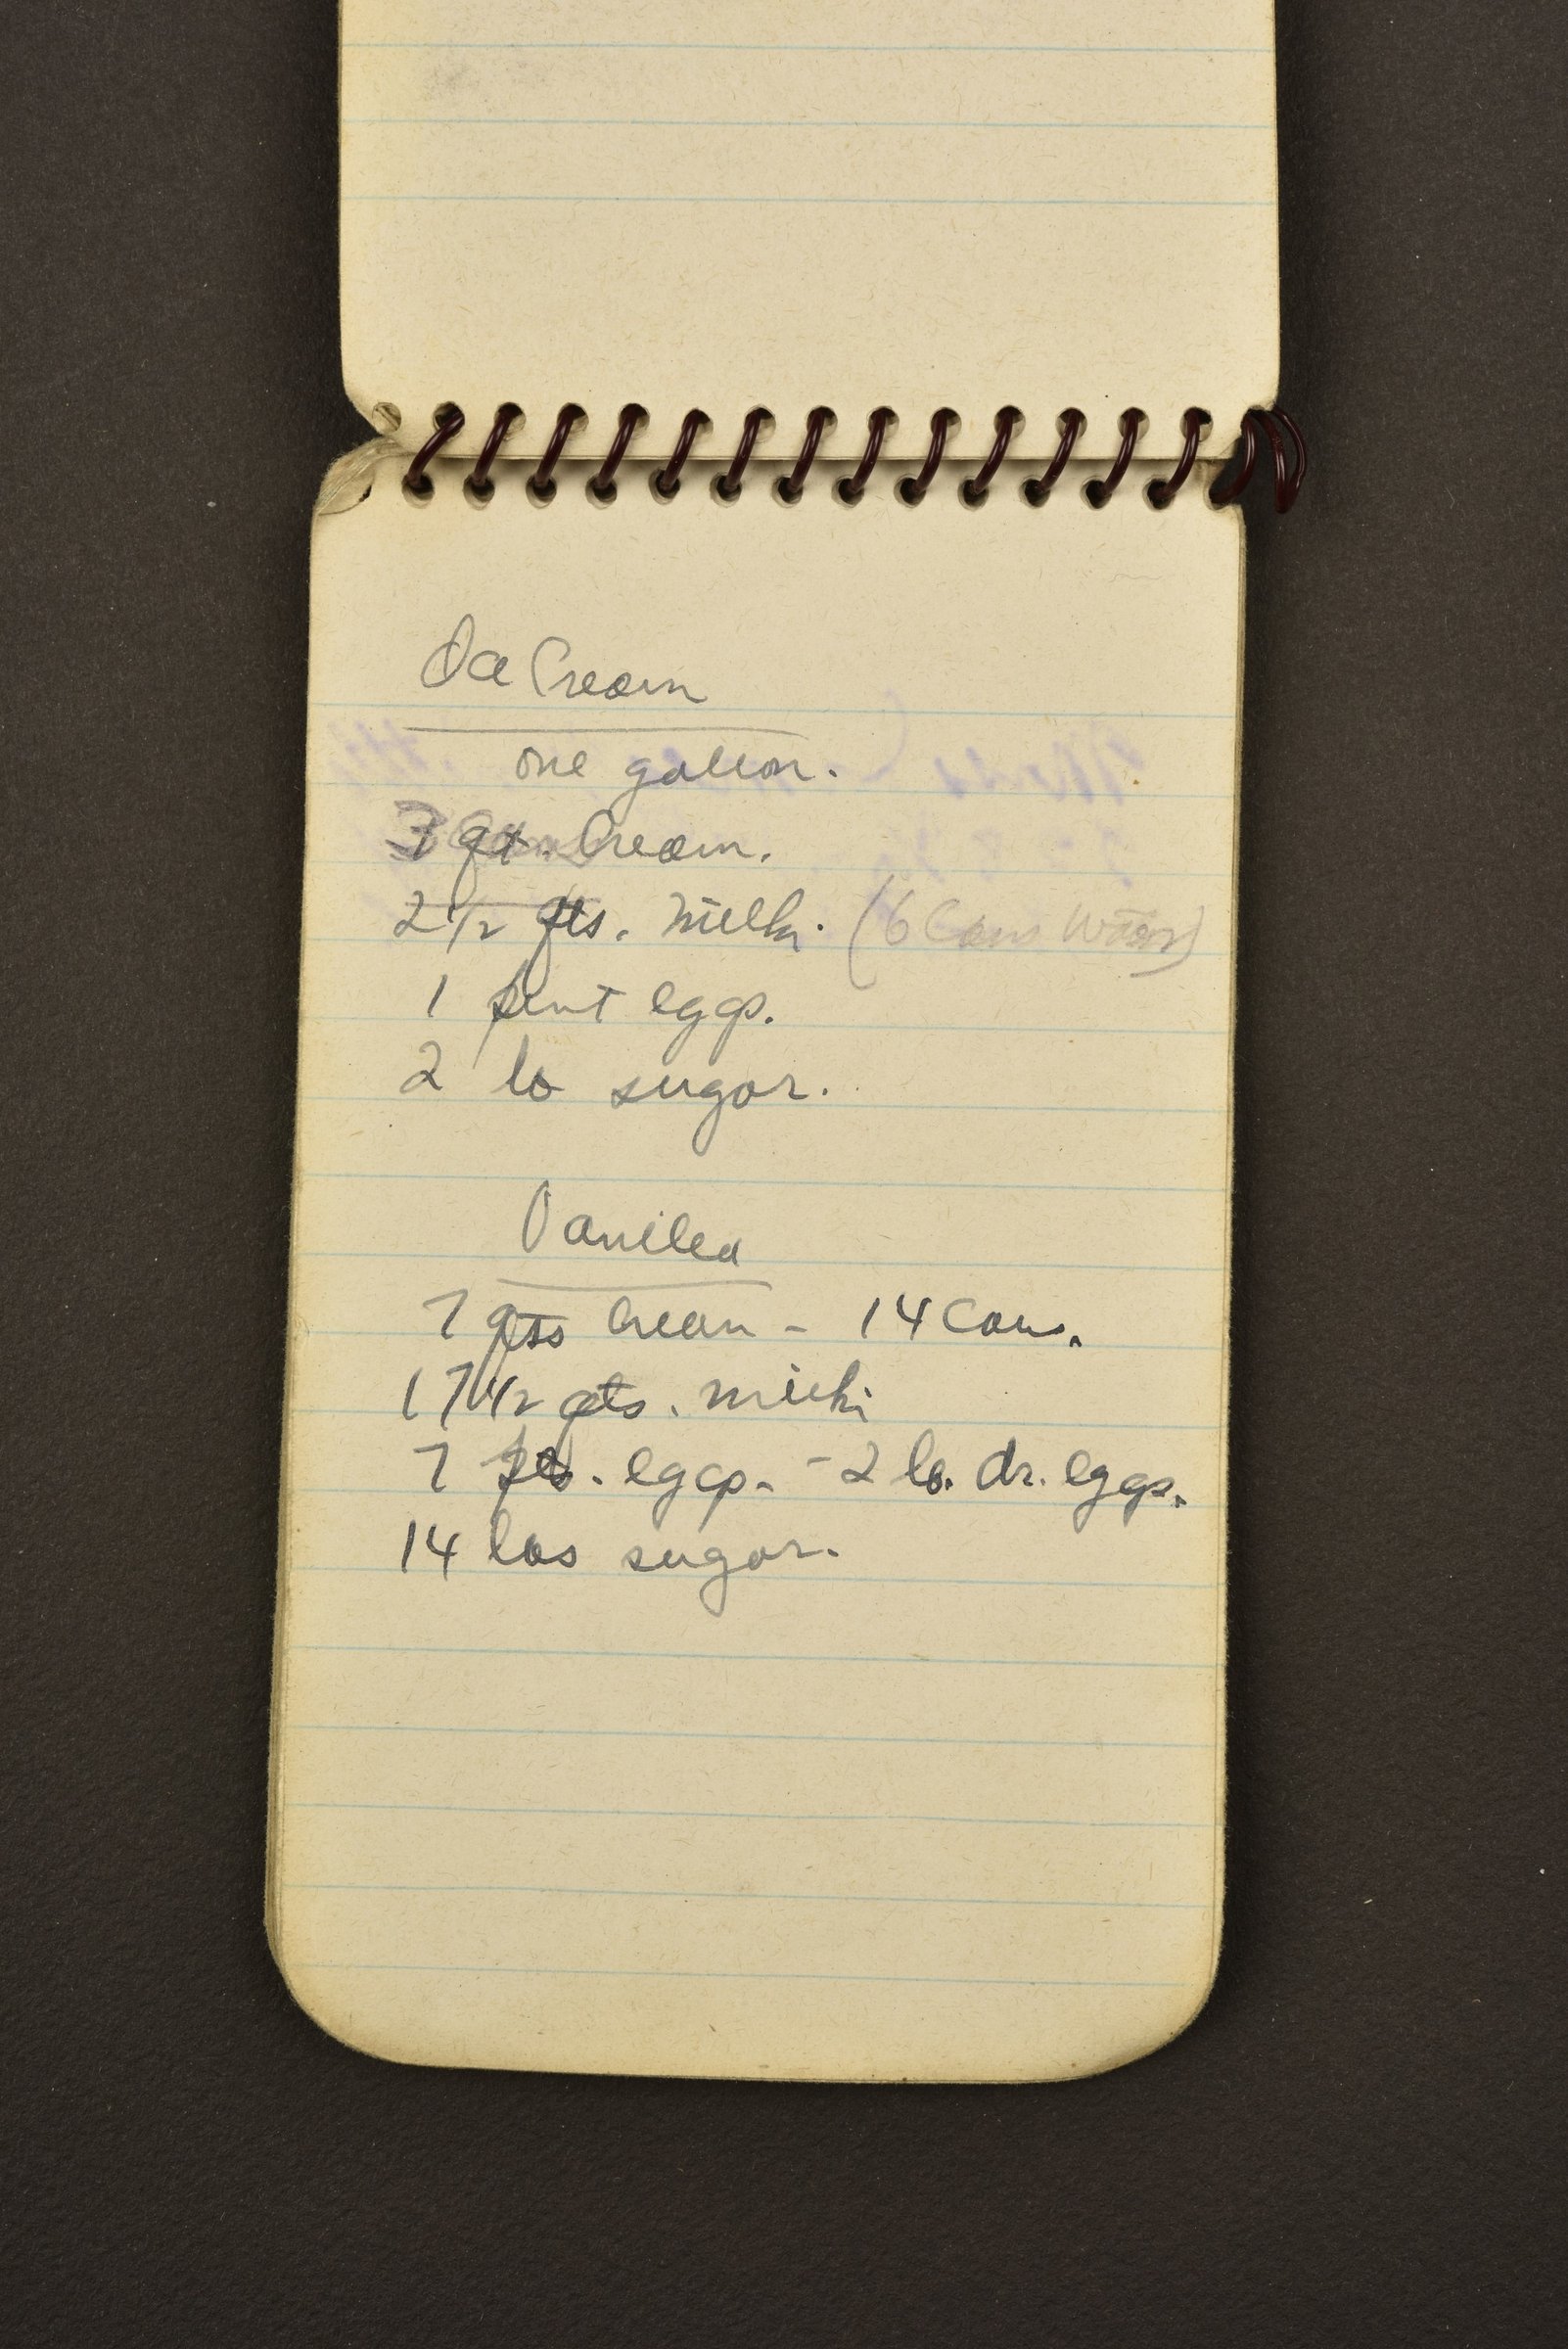 Ice Cream
one gallon.
1 qt. Cream.
2 1/2 qts. milk. (6 Cans Water)
1 pint eggs.
2 lb sugar.
Vanilla
7 qts Cream - 14 Cans.
17 1/2 qts. milk
7 pts. eggs. - 2 lb. dr. eggs.
14 lbs sugar.